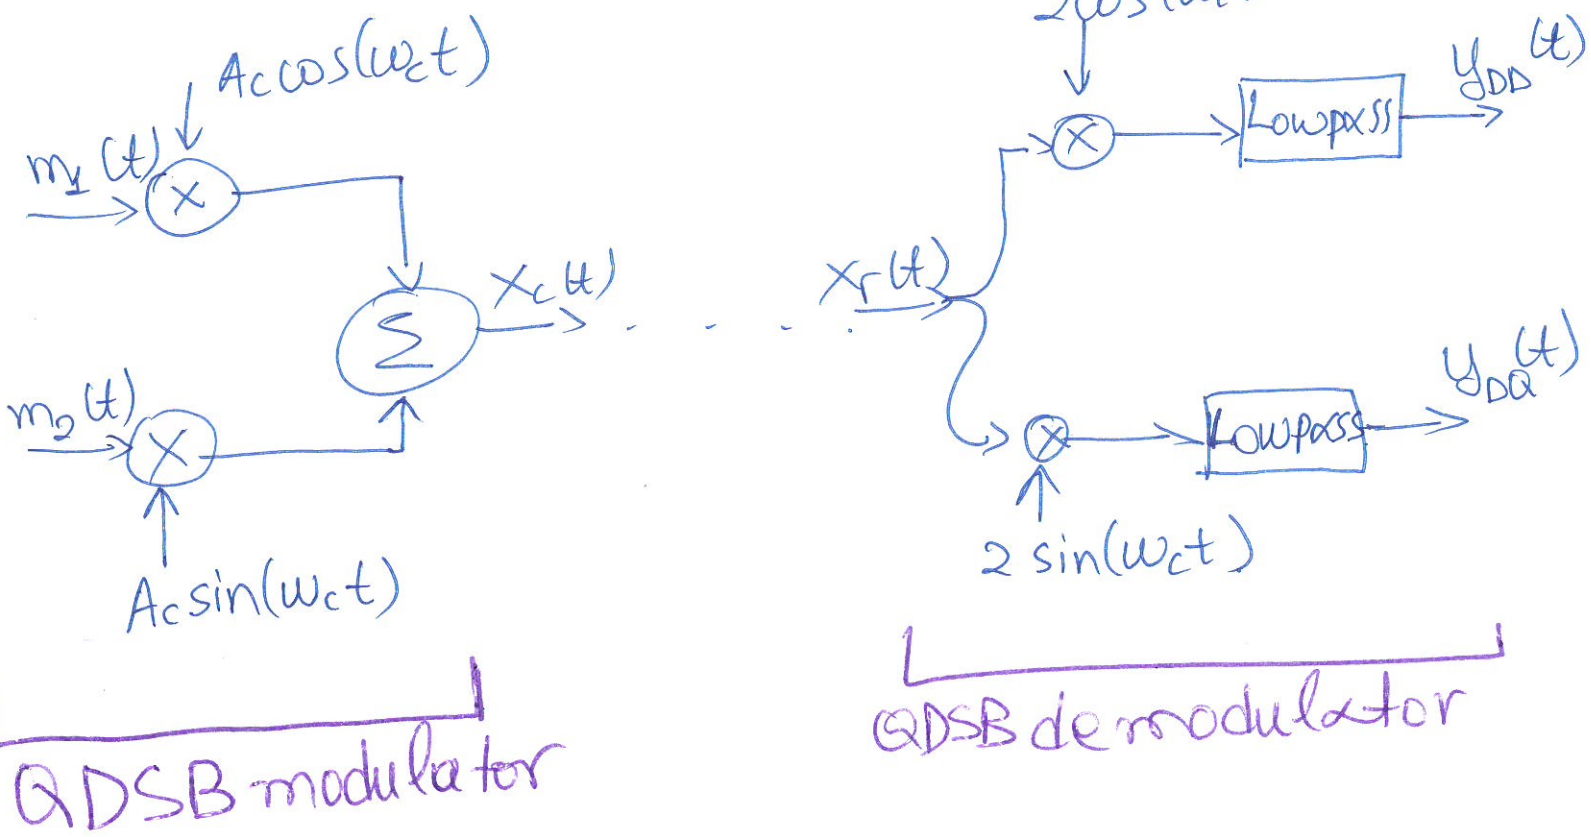 A_c cos(ω_c t)
m_1(t)
X
Σ
x_c(t)
m_2(t)
X
A_c sin(ω_c t)
QDSB modulator
2cos(
X
Lowpass
y_DD(t)
x_r(t)
X
Lowpass
y_DQ(t)
2 sin(ω_c t)
QDSB demodulator